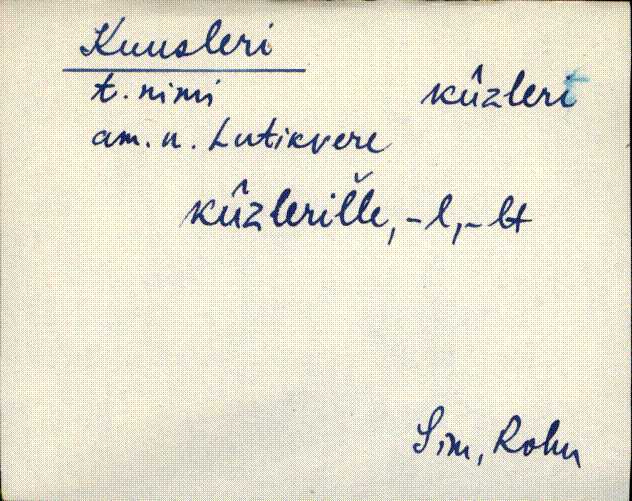 Kuusleri
t. nimi kûzleri
am. n. Lutikvere
kûzlerilľe, -l, -lt
Sim, Rohu